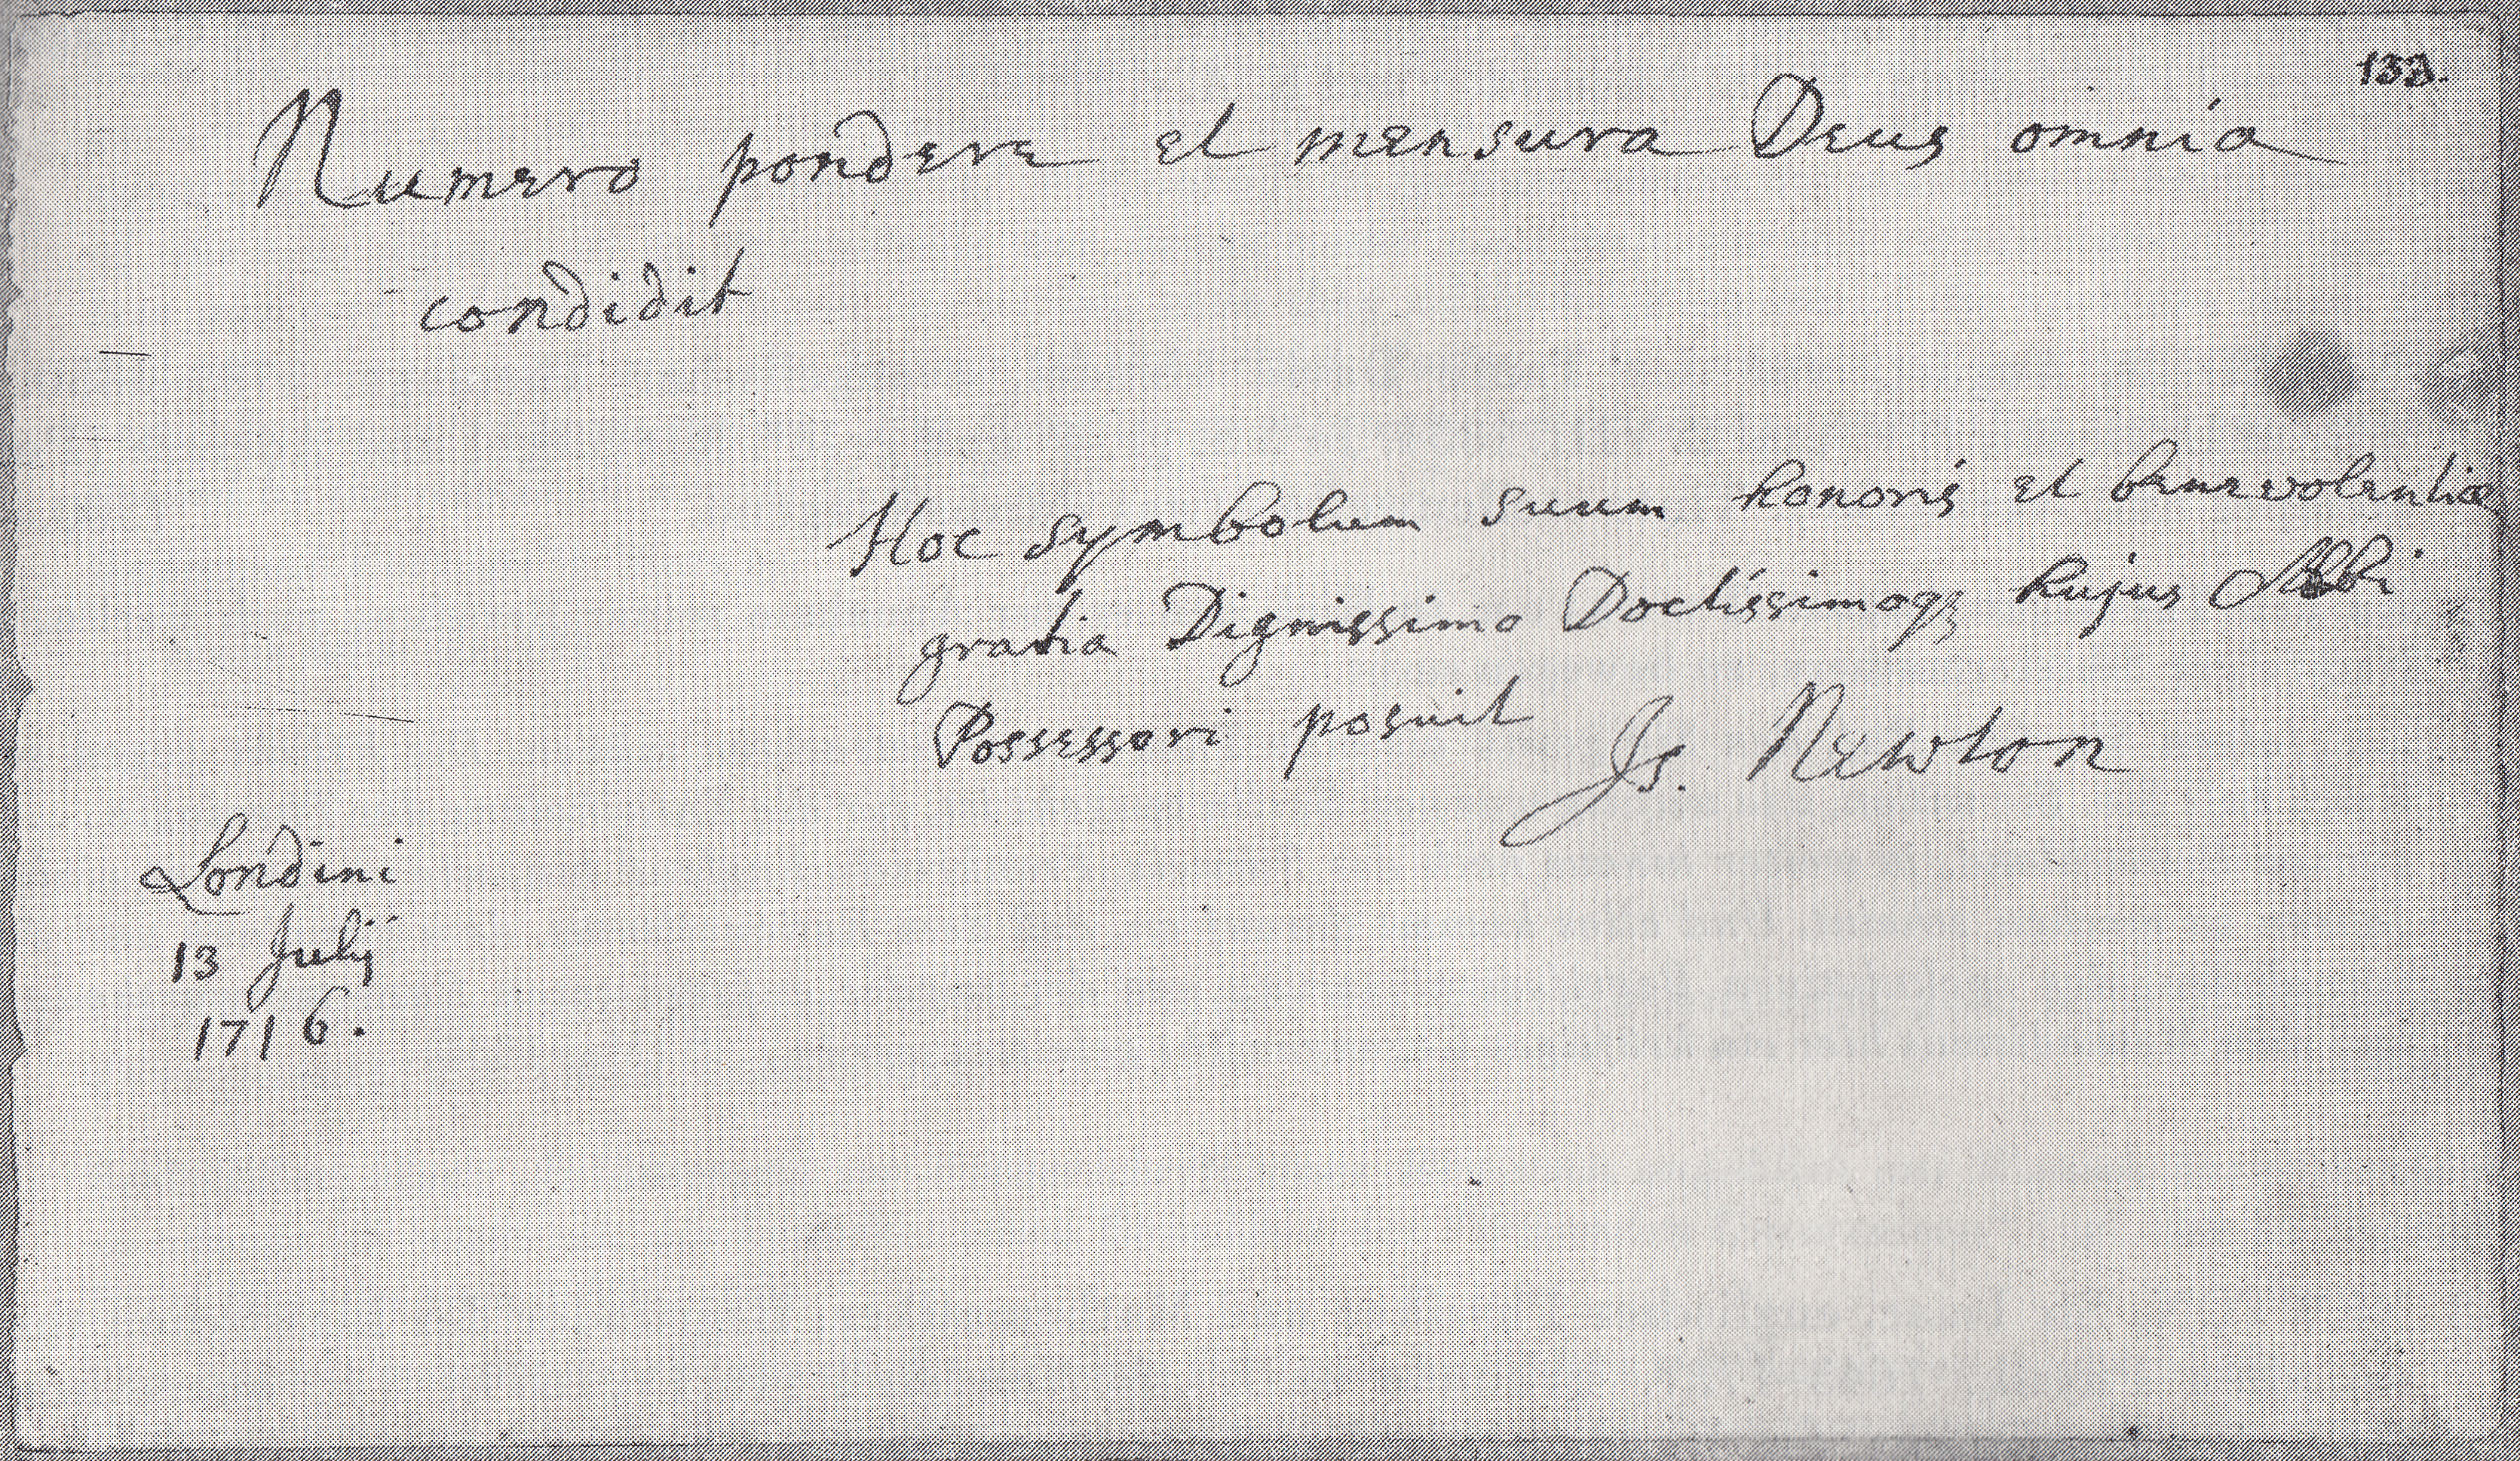 133.
Numero pondere et mensura Deus omnia
condidit
Hoc symbolum suum honoris et benevolentiæ
gratia Dignissimo Doctissimoqꝫ hujus Albi
Possessori posuit Is. Newton
Londini
13 Julij
1716.